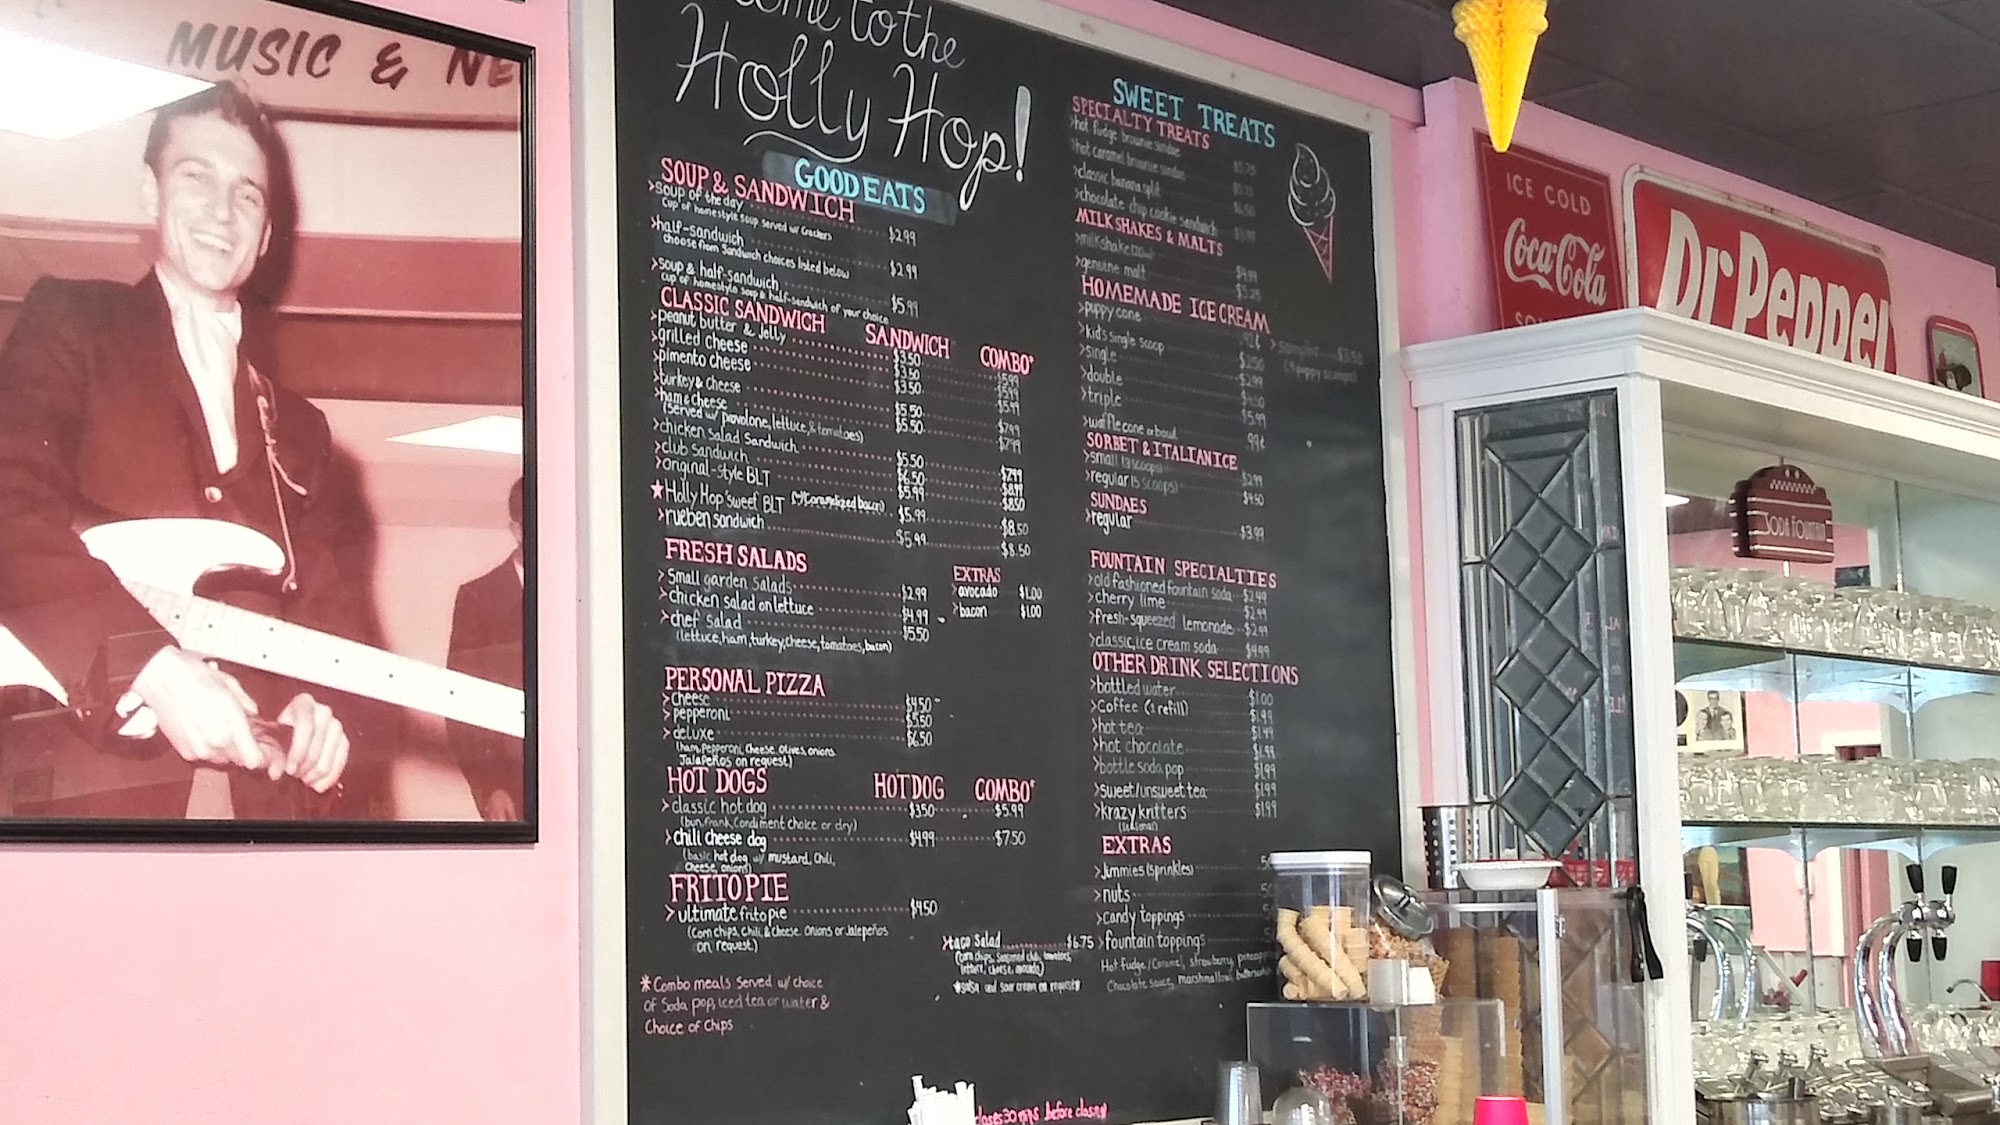 MUSIC & NE
to the
Holly Hop!
GOOD EATS
SOUP & SANDWICH
>soup of the day $2.99
Cup of homestyle soup served w/ crackers
>half-sandwich $2.99
choose from sandwich choices listed below
>soup & half-sandwich $5.99
cup of homestyle soup & half-sandwich of your choice
CLASSIC SANDWICH SANDWICH COMBO*
>peanut butter & jelly $3.50 $5.99
>grilled cheese $3.50 $5.99
>pimento cheese $3.50 $5.99
>turkey & cheese $5.50 $7.99
>ham & cheese $5.50 $7.99
(served w/ provolone, lettuce, & tomatoes)
>chicken salad sandwich $5.50 $7.99
>club sandwich $6.50 $8.99
>original-style BLT $5.99 $8.50
*Holly Hop 'sweet' BLT (w/ caramelized bacon) $5.99 $8.50
>rueben sandwich $5.99 $8.50
FRESH SALADS
>small garden salads $2.99
>chicken salad on lettuce $4.99
>chef salad $5.50
(lettuce, ham, turkey, cheese, tomatoes, bacon)
EXTRAS
>avocado $1.00
>bacon $1.00
PERSONAL PIZZA
>cheese $4.50
>pepperoni $5.50
>deluxe $6.50
(ham, pepperoni, cheese, olives, onions.
Jalapeños on request)
HOT DOGS HOT DOG COMBO*
>classic hot dog $3.50 $5.99
(bun, frank, condiment choice or dry)
>chili cheese dog $4.99 $7.50
(basic hot dog w/ mustard, chili,
cheese, onions)
FRITO PIE
>ultimate frito pie $4.50
(Corn chips, chili, & cheese. Onions or jalepeños
on request)
>taco salad $6.75
(corn chips, seasoned chili, tomatoes,
lettuce, cheese, avocado)
*salsa and sour cream on request*
*Combo meals served w/ choice
of Soda pop, iced tea or water &
Choice of Chips
SWEET TREATS
SPECIALTY TREATS
>hot fudge brownie sundae
>hot caramel brownie sundae
>classic banana split $6.50
>chocolate chip cookie sandwich
MILKSHAKES & MALTS
>milkshake (20oz) $4.99
>genuine malt $5.25
HOMEMADE ICE CREAM
>puppy cone .92¢
>kid's single scoop $2.50
>single $2.99
>double $4.50
>triple $5.99
>waffle cone or bowl 99¢
>sampler $3.50
(4 puppy scoops)
SORBET & ITALIAN ICE
>small (3 scoops) $2.99
>regular (5 scoops) $4.50
SUNDAES
>regular $3.99
FOUNTAIN SPECIALTIES
>old fashioned fountain soda $2.99
>cherry lime $2.99
>fresh-squeezed lemonade $2.99
>classic ice cream soda $4.99
OTHER DRINK SELECTIONS
>bottled water $1.00
>Coffee (1 refill) $1.49
>hot tea $1.49
>hot chocolate $1.99
>bottle soda pop $1.99
>sweet/unsweet tea $1.99
>krazy kritters $1.99
EXTRAS
>jimmies (sprinkles)
>nuts
>candy toppings
>fountain toppings
Hot fudge/Caramel, strawberry, pineapple
Chocolate sauce, marshmallow,
closes 30 mins before closing
ICE COLD
Coca-Cola
Dr Pepper
SODA FOUNTAIN